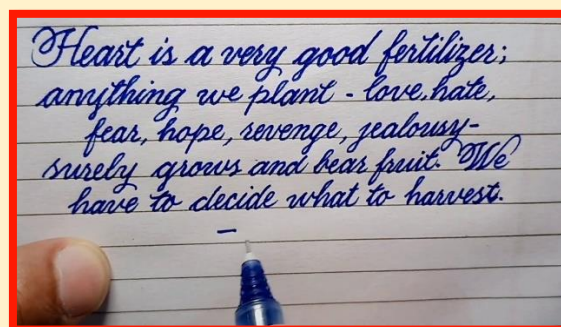 Heart is a very good fertilizer;
anything we plant - love, hate,
fear, hope, revenge, jealousy-
surely grows and bear fruit. We
have to decide what to harvest.
-